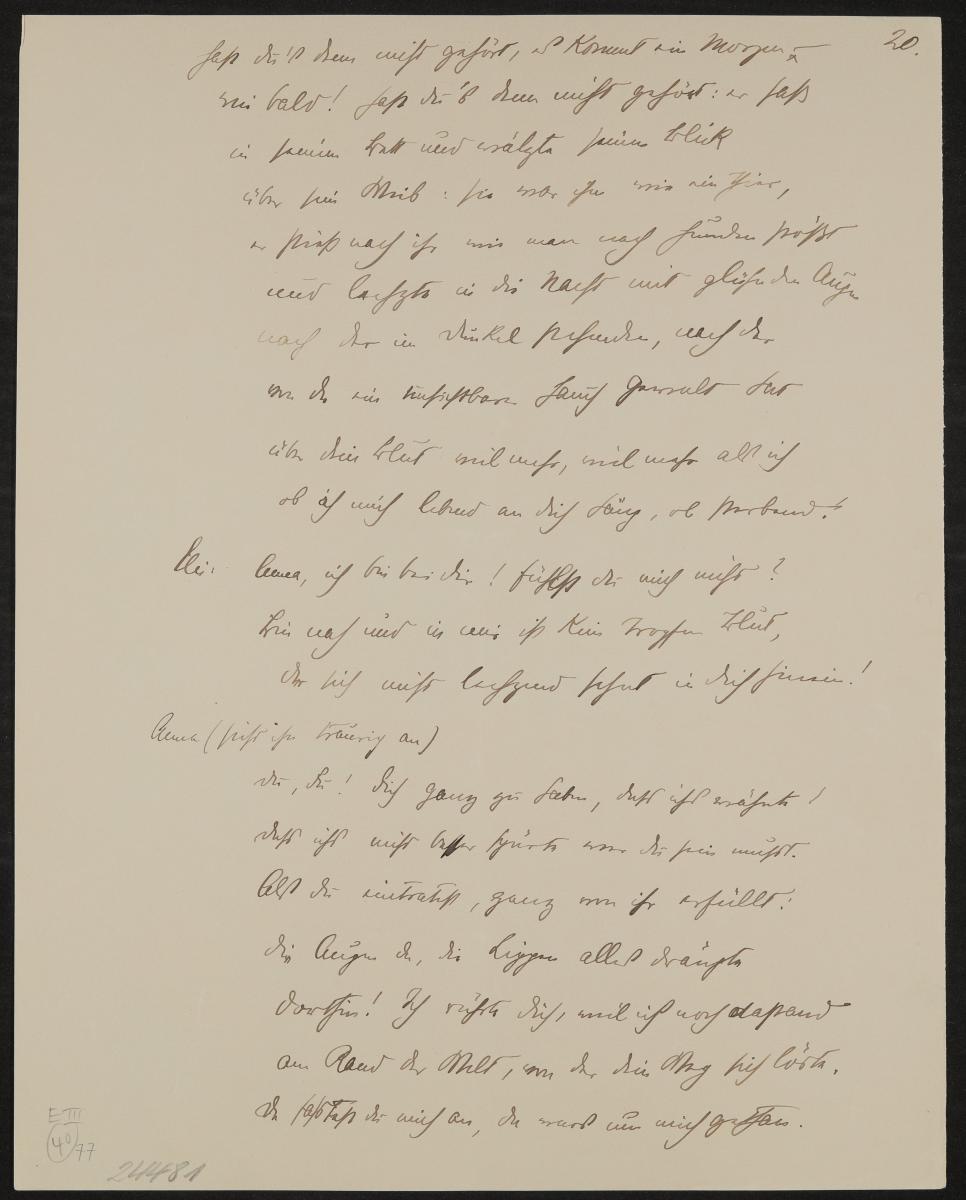 20.
hast du's denn nicht gehört, es kommt ein Morgen –
wie bald! hast du's denn nicht gehört: er saß
in seinem Bett und wälzte seinen Blick
über sein Weib: sie war ihm wie ein Tier,
er stieß nach ihr wie man nach Hunden stößt
und lechzte in die Nacht mit glühnden Augen
nach der im Dunkel stehenden, nach der
von der ein unsichtbarer Hauch Gewalt hat
über dein Blut viel mehr, viel mehr als ich
ob ich mich lebend an dich häng, ob sterbend!
Anna, ich bin bei dir! fühlst du mich nicht?
Bin nah und in mir ist kein Tropfen Blut,
der sich nicht lechzend sehnt in dich hinein!
Anna (sieht ihn traurig an)
du, du! dich ganz zu haben, dass ichs wähnte!
dass ichs nicht besser spürte wer du sein musst.
Als du eintratst, ganz von ihr erfüllt:
die Augen da, die Lippen alles drängte
dorthin! Ich rührte dich, weil ich noch dastand
am Rand der Welt, von der dein Weg sich löste.
Da fasstest du mich an, da wars um mich gethan.
E III
40
77
24481